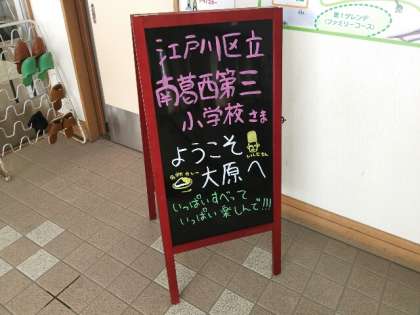 江戸川区立
南葛西第三
小学校さま
ようこそ
大原へ
いっぱいすべって
いっぱい楽しんで!!!
第1ゲレンデ
(ファミリーコース)